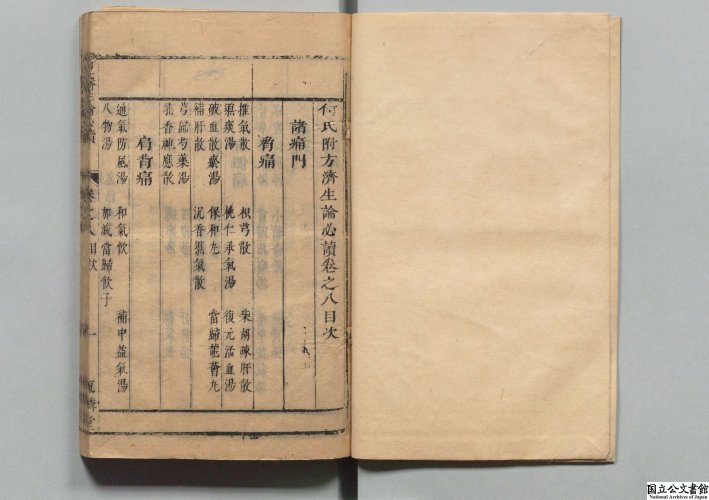 何氏附方濟生論必讀卷之八目次
諸痛門
脅痛
推氣散　枳芎散　柴胡疎肝散
導痰湯　桃仁承氣湯　復元活血湯
破血散瘀湯　保和丸　當歸龍薈丸
補肝散　沉香降氣散
芎歸芍藥湯
乳香神應散
肩背痛
通氣防風湯　和氣飲　補中益氣湯
八物湯　加減當歸飲子
卷之八目次　一
国立公文書館
National Archives of Japan